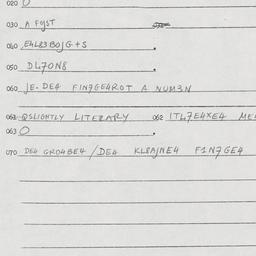 020 0
030 A FYST
040 E4L83B0JG+S.
050 DL7ON8.
060 JE. DE4 FIN7GE4ROT A NUM3N
061 @SLIGHTLY LITERARY 062 ITL7E4XE4 ME
063 0.
070 DE4 GRO4BE4 / DE4 KL8AJNE4 F1N7GE4